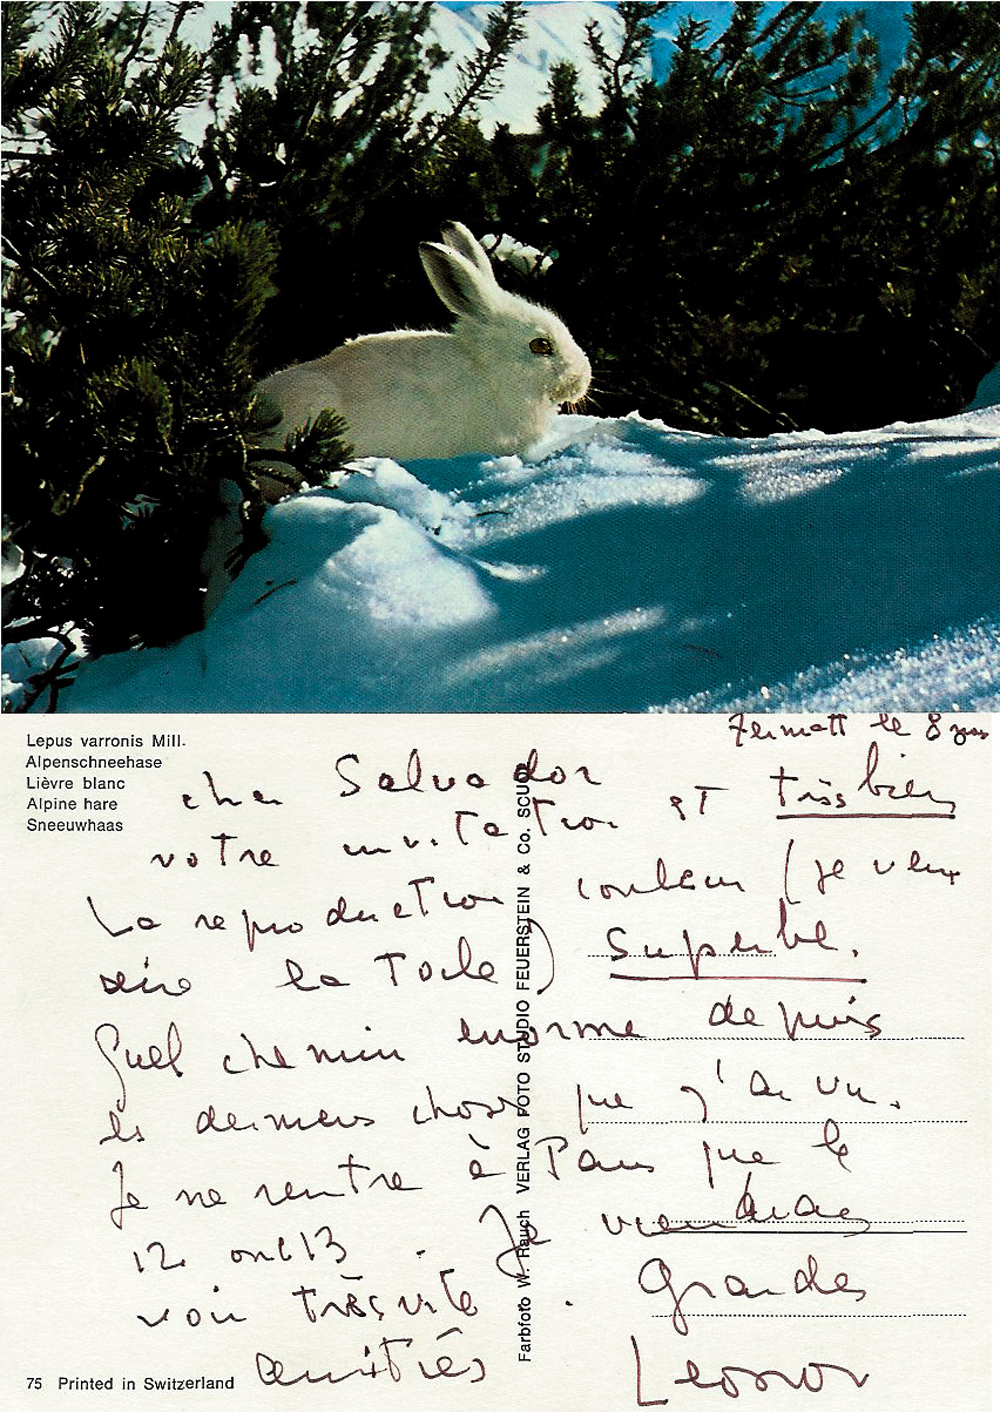 Lepus varronis Mill.
Alpenschneehase
Lièvre blanc
Alpine hare
Sneeuwhaas
Zermatt le 8
cher Salvador
votre invitation est très bien
La reproduction couleur (je veux
dire la toile) superbe.
Quel chemin enorme depuis
les derniers choses que j'ai vu.
Je ne rentre à Paris que le
12 ou le 13. Je viendrai
voir très vite. Grandes
amitiés Leonor
Farbfoto W. Rauch VERLAG FOTO STUDIO FEUERSTEIN & Co. SCUOL
75 Printed in Switzerland